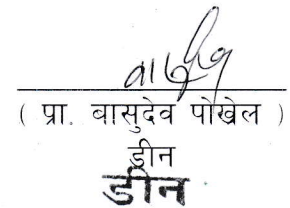 ( प्रा. बासुदेव पोखेल )
डीन
डीन